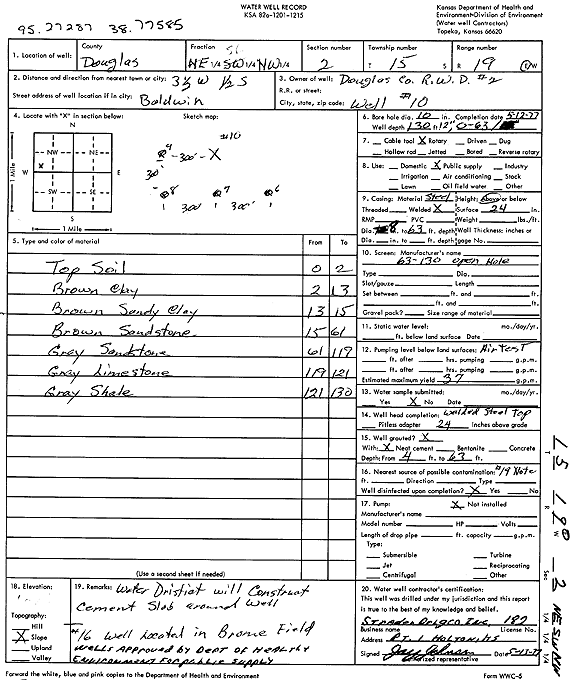 WATER WELL RECORD
KSA 82a-1201-1215
Kansas Department of Health and
Environment-Division of Environment
(Water well Contractors)
Topeka, Kansas 66620
95.27237 38.77585
1. Location of well: County Douglas Fraction NE ¼ SW ¼ NW ¼ Section number 2 Township number T 15 S Range number R 19 E/W
2. Distance and direction from nearest town or city: 3½ W ½ S
Street address of well location if in city: Baldwin
3. Owner of well: Douglas Co. R.W.D. #2
R.R. or street:
City, state, zip code: Well #10
4. Locate with "X" in section below: Sketch map:
N
NW NE
W E
SW SE
S
1 Mile
1 Mile
#10
#9 300' X
300'
#8 #7 #6
300' 300'
5. Type and color of material From To
Top Soil 0 2
Brown Clay 2 13
Brown Sandy Clay 13 15
Brown Sandstone 15 61
Gray Sandstone 61 119
Gray Limestone 119 121
Gray Shale 121 130
(Use a second sheet if needed)
6. Bore hole dia. 10 in. Completion date 5-12-77
Well depth 130 ft.
7. Cable tool X Rotary Driven Dug
Hollow rod Jetted Bored Reverse rotary
8. Use: Domestic X Public supply Industry
Irrigation Air conditioning Stock
Lawn Oil field water Other
9. Casing: Material Steel Height: Above or below
Threaded Welded X Surface 24 in.
RMP PVC Weight lbs./ft.
Dia. 8 to 63 ft. depth Wall Thickness: inches or
Dia. in. to ft. depth gage No.
10. Screen: Manufacturer's name
63-130 open Hole
Type Dia.
Slot/gauze Length
Set between ft. and ft.
ft. and ft.
Gravel pack? Size range of material
11. Static water level: mo./day/yr.
ft. below land surface Date
12. Pumping level below land surfaces: Air test
ft. after hrs. pumping g.p.m.
ft. after hrs. pumping g.p.m.
Estimated maximum yield 37 g.p.m.
13. Water sample submitted: mo./day/yr.
Yes X No Date
14. Well head completion: welded Steel Top
Pitless adapter 24 inches above grade
15. Well grouted? X
With: X Neat cement Bentonite Concrete
Depth: From 4 ft. to 63 ft.
16. Nearest source of possible contamination: #19 Note
ft. Direction Type
Well disinfected upon completion? X Yes No
17. Pump: X Not installed
Manufacturer's name
Model number HP Volts
Length of drop pipe ft. capacity g.p.m.
Type:
Submersible Turbine
Jet Reciprocating
Centrifugal Other
18. Elevation:
Topography:
Hill
X Slope
Upland
Valley
19. Remarks: Water District will Construct
Cement Slab around Well
#16 Well Located in Brome Field
Wells Approved by Dept of Health &
Environment for public supply
20. Water well contractor's certification:
This well was drilled under my jurisdiction and this report
is true to the best of my knowledge and belief.
Strader Drlg Co Inc, 182
Business name License No.
Address Rt. 1 Holton KS
Signed Date 5-13-77
Authorized representative
Forward the white, blue and pink copies to the Department of Health and Environment Form WWC-5
T 15 R 19 E W Sec 2 NE SW NW
¼ ¼ ¼